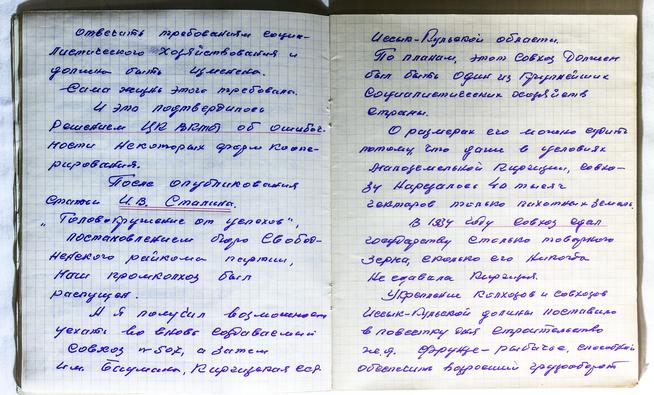 отвечать требованиям социа-
листического хозяйствования и
должна быть изменена.
Сама жизнь этого требовала.
И это подтвердилось
решением ЦК ВКП(б) об ошибоч-
ности некоторых форм коопе-
рирования.
После опубликования
статьи И.В. Сталина
„Головокружение от успехов",
постановлением бюро Свобод-
ненского райкома партии,
наш промколхоз был
распущен.
И я получил возможность
уехать во вновь создаваемый
совхоз а затем
им. Баумана, Киргизская ССР
Иссык-Кульской области.
По планам, этот совхоз должен
был быть один из крупнейших
социалистических хозяйств
страны.
О размерах его можно судить
потому, что даже в условиях
малоземельной Киргизии, совхо-
зу нарезалось 40 тысяч
гектаров только пахотных земель.
В 1934 году совхоз сдал
государству столько товарного
зерна, сколько его никогда
не сдавала Киргизия.
Укрепление колхозов и совхозов
Иссык-Кульской долины поставило
в повестку дня строительство
ж.д. Фрунзе-Рыбачье, способной
обеспечить возросший грузооборот